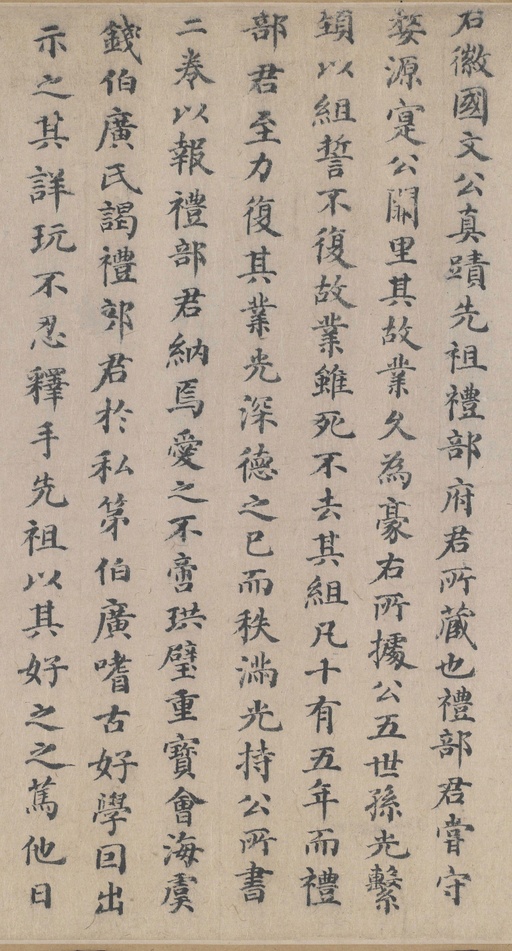 右徽國文公真蹟先祖禮部府君所藏也禮部君嘗守
婺源寔公闕里其故業久為豪右所據公五世孫光繫
頸以組誓不復故業雖死不去其組凡十有五年而禮
部君至力復其業光深德之已而秩滿光持公所書
二卷以報禮部君納焉愛之不啻珙璧重寶會海虞
錢伯廣氏謁禮部君於私第伯廣嗜古好學回出
示之其詳玩不忍釋手先祖以其好之之篤他日